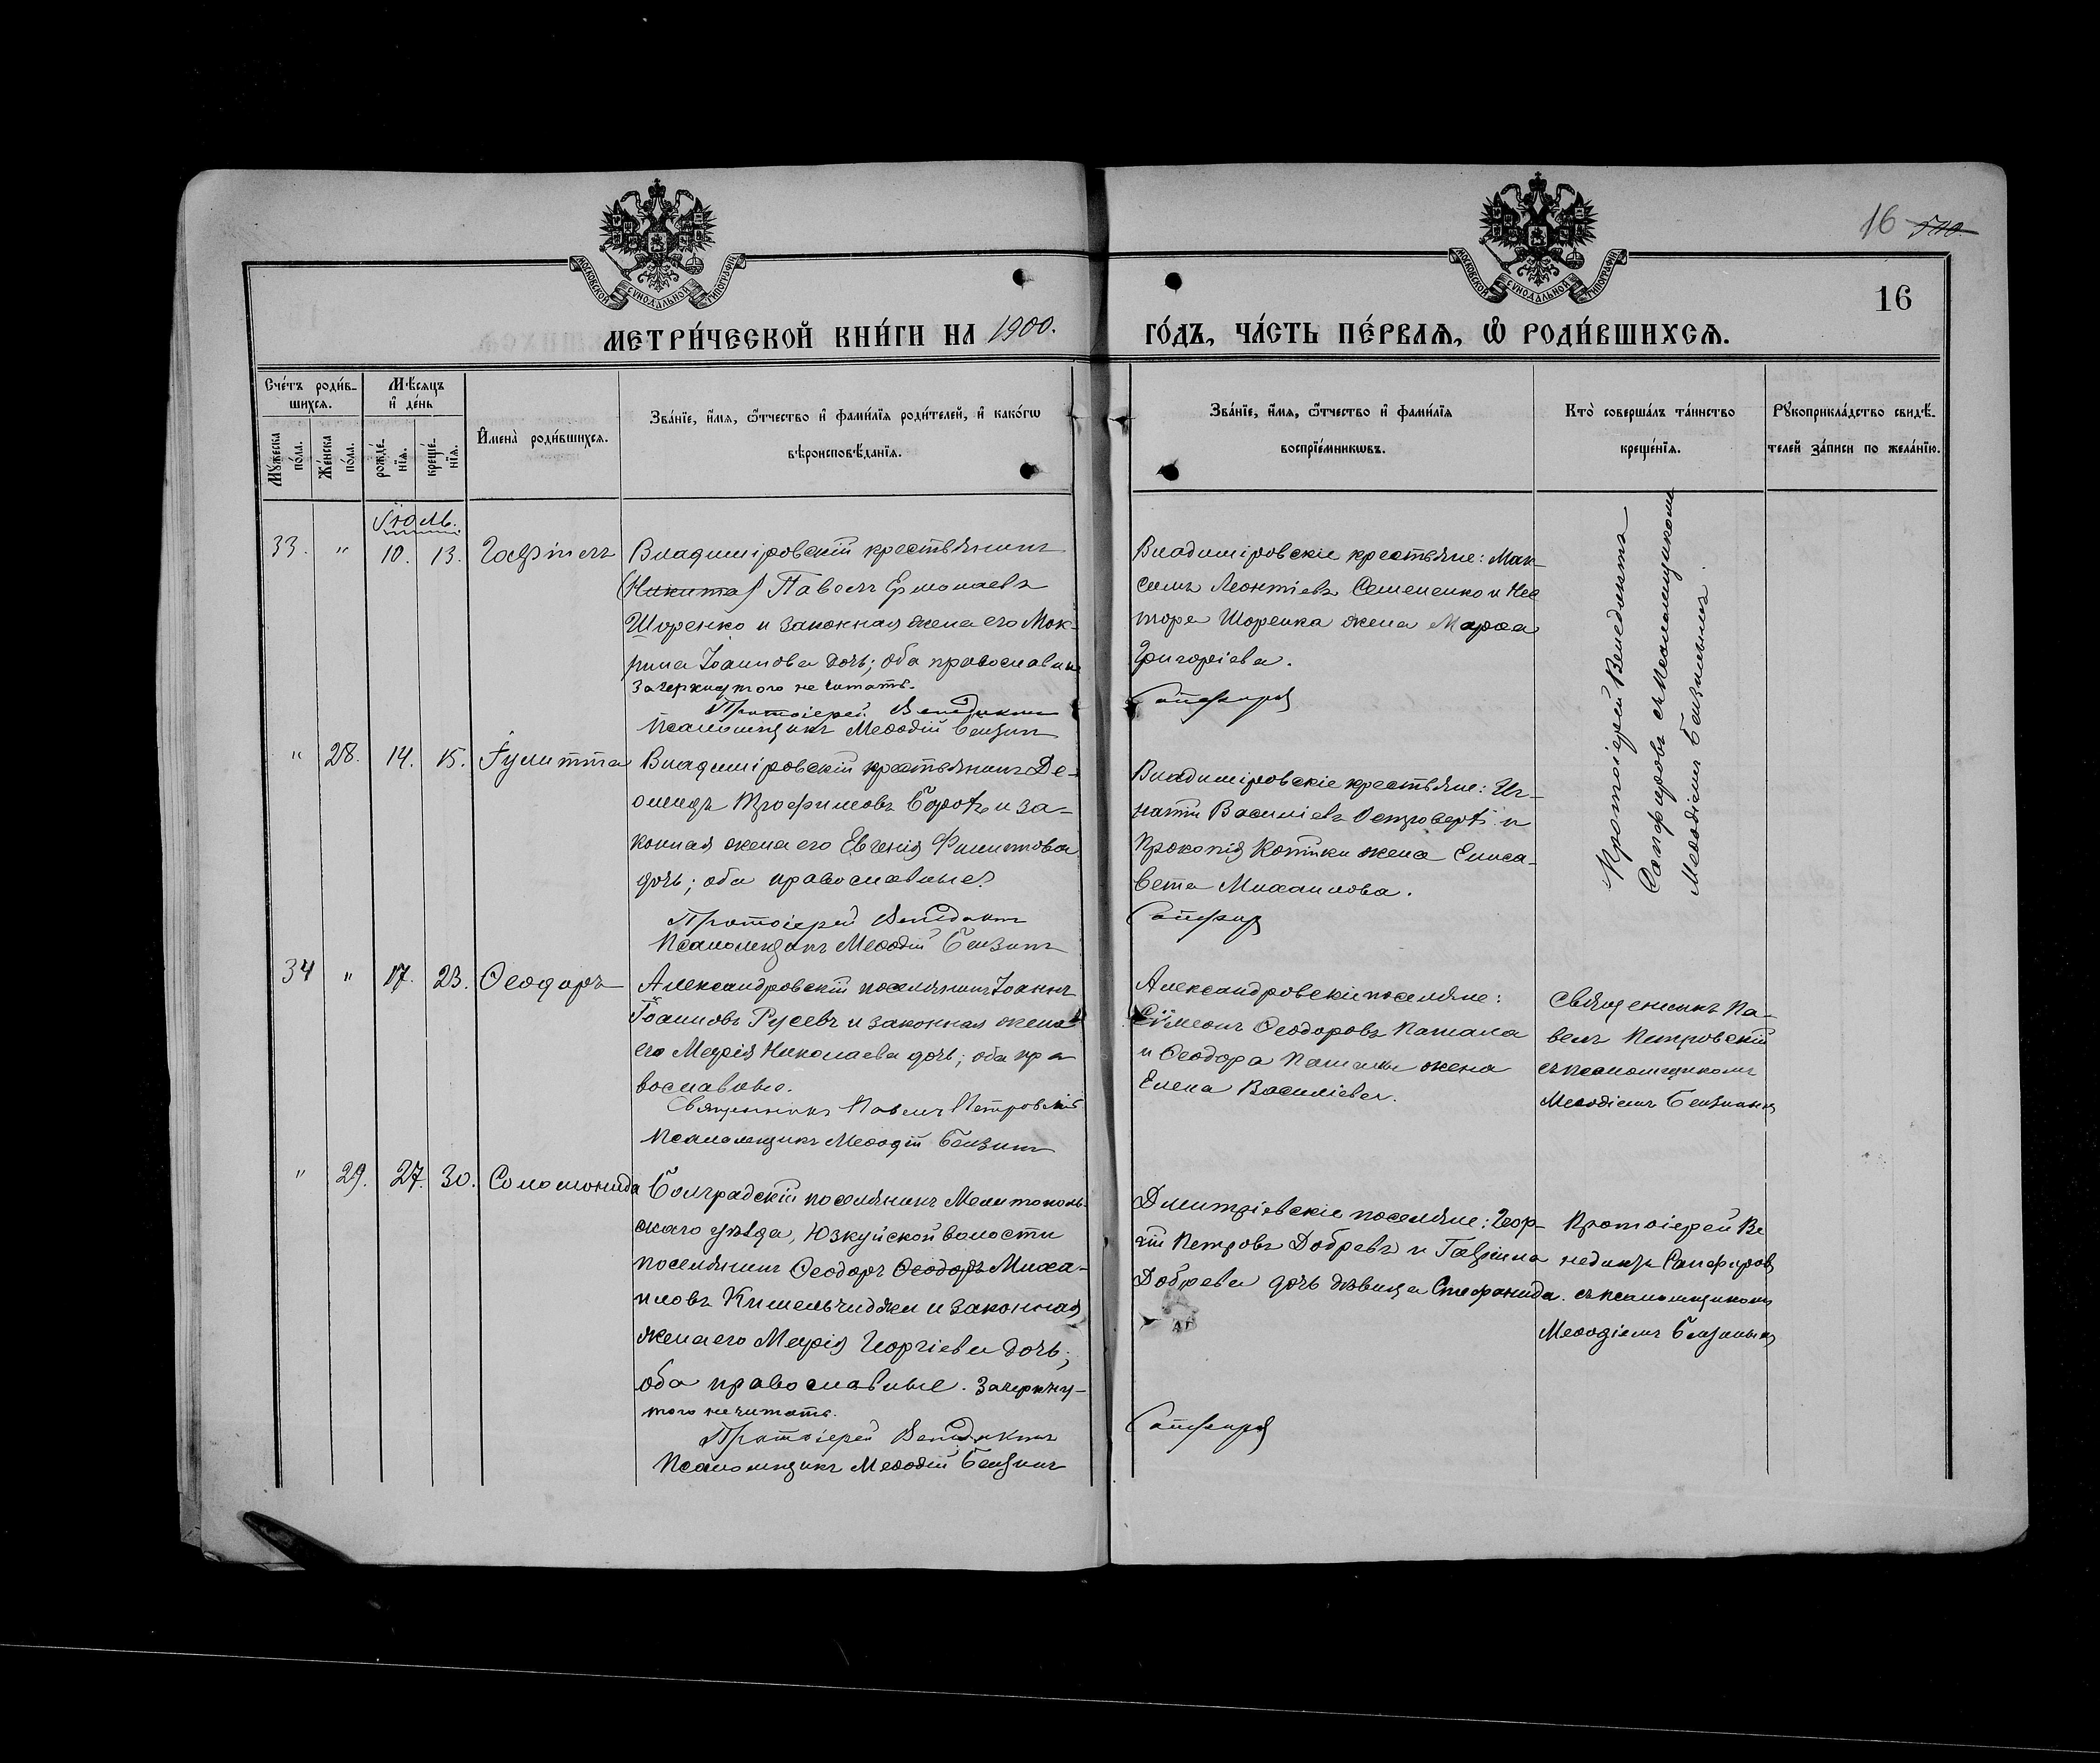 16 510.
МОСКОВСКОЙ СѴНОДАЛЬНОЙ ТИПОГРАФІИ
МОСКОВСКОЙ СѴНОДАЛЬНОЙ ТИПОГРАФІИ
16
МЕТРИ́ЧЕСКОЙ КНИ́ГИ НА 1900. ГО́ДЪ, ЧА́СТЬ ПЕ́РВАѦ, Ѽ РОДИ́ВШИХСѦ.
Сче́тъ роди́в-
шихсѧ.
Мꙋ́жеска по́ла.
Же́нска по́ла.
Мѣ́сѧцъ
и҆ де́нь
рожде́нїѧ.
креще́нїѧ.
И҆мена̀ роди́вшихсѧ.
Зва́нїе, и҆́мѧ, ѻ҆́тчество и҆ фами́лїѧ роди́телей, и҆ како́гѡ
вѣроисповѣ́данїѧ.
Зва́нїе, и҆́мѧ, ѻ҆́тчество и҆ фами́лїѧ
воспрїе́мникѡвъ.
Кто̀ соверша́лъ та́инство
креще́нїѧ.
Рꙋкоприкла́дство свидѣ́-
телей за́писи по жела́нїю.
Іюль.
33. " 10. 13. Гавріилъ
Владиміровскій крестьянинъ
(Никита) Павелъ Ермолаевъ
Шоренко и законная жена его Мок-
рина Іоаннова дочь; оба православные
Зачеркнутого не читать.
Протоіерей Венедиктъ
Псаломщикъ Меѳодій Бензинъ
Владиміровскіе крестьяне: Мак-
симъ Леонтіевъ Семененко и Нес
тора Шоренка жена Марѳа
Григоріева.
Сапфировъ
Протоіерей Венедиктъ
Сапфировъ съ псаломщикомъ
Меѳодіемъ Бензинымъ.
" 28. 14. 15. Іулитта
Владиміровскій крестьянинъ Де-
омидъ Трофимовъ и за-
конная жена его Евгенія Филиппова
дочь; оба православные.
Протоіерей Венедиктъ
Псаломщикъ Меѳодій Бензинъ
Владиміровскіе крестьяне: Иг-
натій Василіевъ и
Прокопія Котыки жена Елиса-
вета Михаилова.
Сапфиров
34 " 17. 23. Ѳеодоръ
Александровскій поселянинъ Іоаннъ
Іоанновъ Русевъ и законная жена
его Марія Николаева дочь; оба пра
вославные.
Священникъ Павелъ Петровскій
Псаломщикъ Меѳодій Бензинъ
Александровскіе поселяне:
Сѵмеонъ Ѳеодоровъ Пашала
и Ѳеодора Пашалы жена
Елена Василіева.
Священникъ Па-
велъ Петровскій
съ псаломщикомъ
Меѳодіемъ Бензинымъ
" 29. 27. 30. Соломонида
Болградскій поселянинъ Мелитополь-
скаго уѣзда, Юзкуйской волости
поселянинъ Ѳеодоръ Ѳеодоръ Миха-
иловъ Кишельчиджи и законная
жена его Марія Георгіева дочь;
оба православные. Зачеркну-
того не читать.
Протоіерей Венедиктъ
Псаломщикъ Меѳодій Бензинъ
Димитріевскіе поселяне: Геор-
гій Петровъ Добревъ и Гавріила
Добрева дочь дѣвица Стефанида.
Сапфировъ
Протоіерей Ве
недиктъ Сапфировъ
съ псаломщикомъ
Меѳодіемъ Бензинымъ